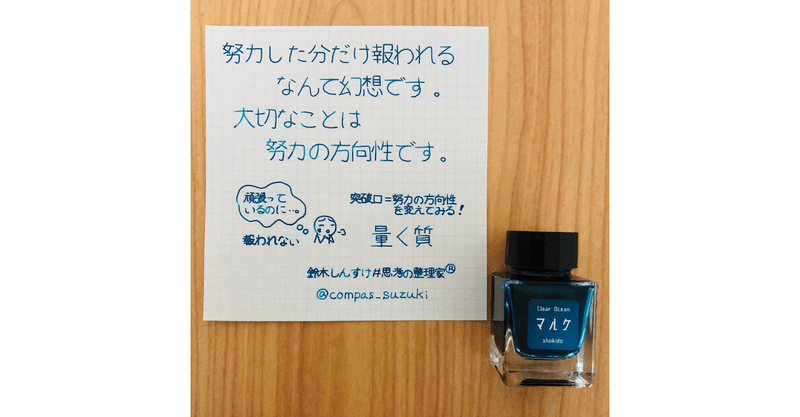 努力した分だけ報われる
なんて幻想です。
大切なことは
努力の方向性です。
頑張って
いるのに…。
報われない
突破口=努力の方向性
を変えてみる!
量く質
鈴木しんすけ#思考の整理家®
@compas_suzuki
Clear Ocean
マルク
shokido